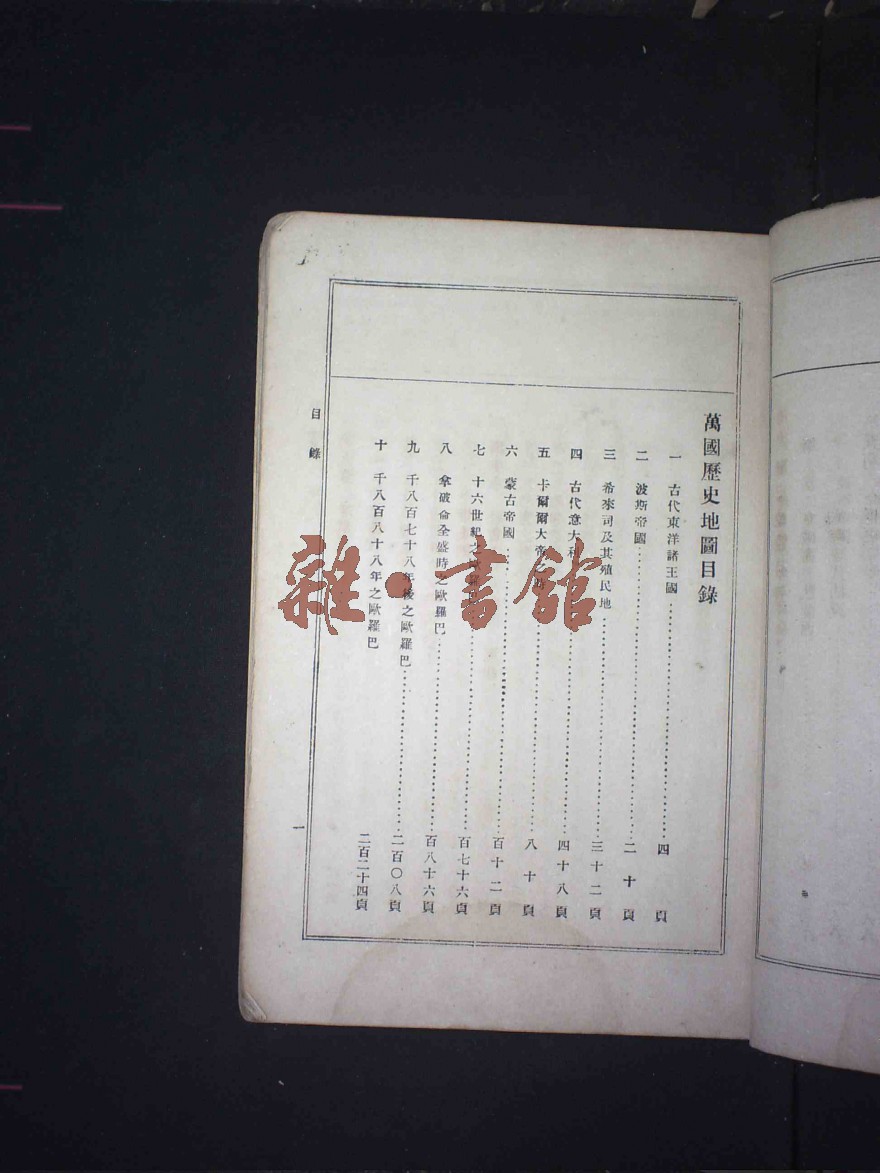 萬國歷史地圖目錄
一 古代東洋諸王國……四頁
二 波斯帝國……二十頁
三 希來司及其殖民地……三十二頁
四 古代意大利……四十八頁
五 卡爾爾大帝……八十頁
六 蒙古帝國……百十二頁
七 十六世紀之……百七十六頁
八 拿破侖全盛時之歐羅巴……百八十六頁
九 千八百七十八年後之歐羅巴……二百〇八頁
十 千八百八十八年之歐羅巴 二百二十四頁
目錄
一
雜·書館